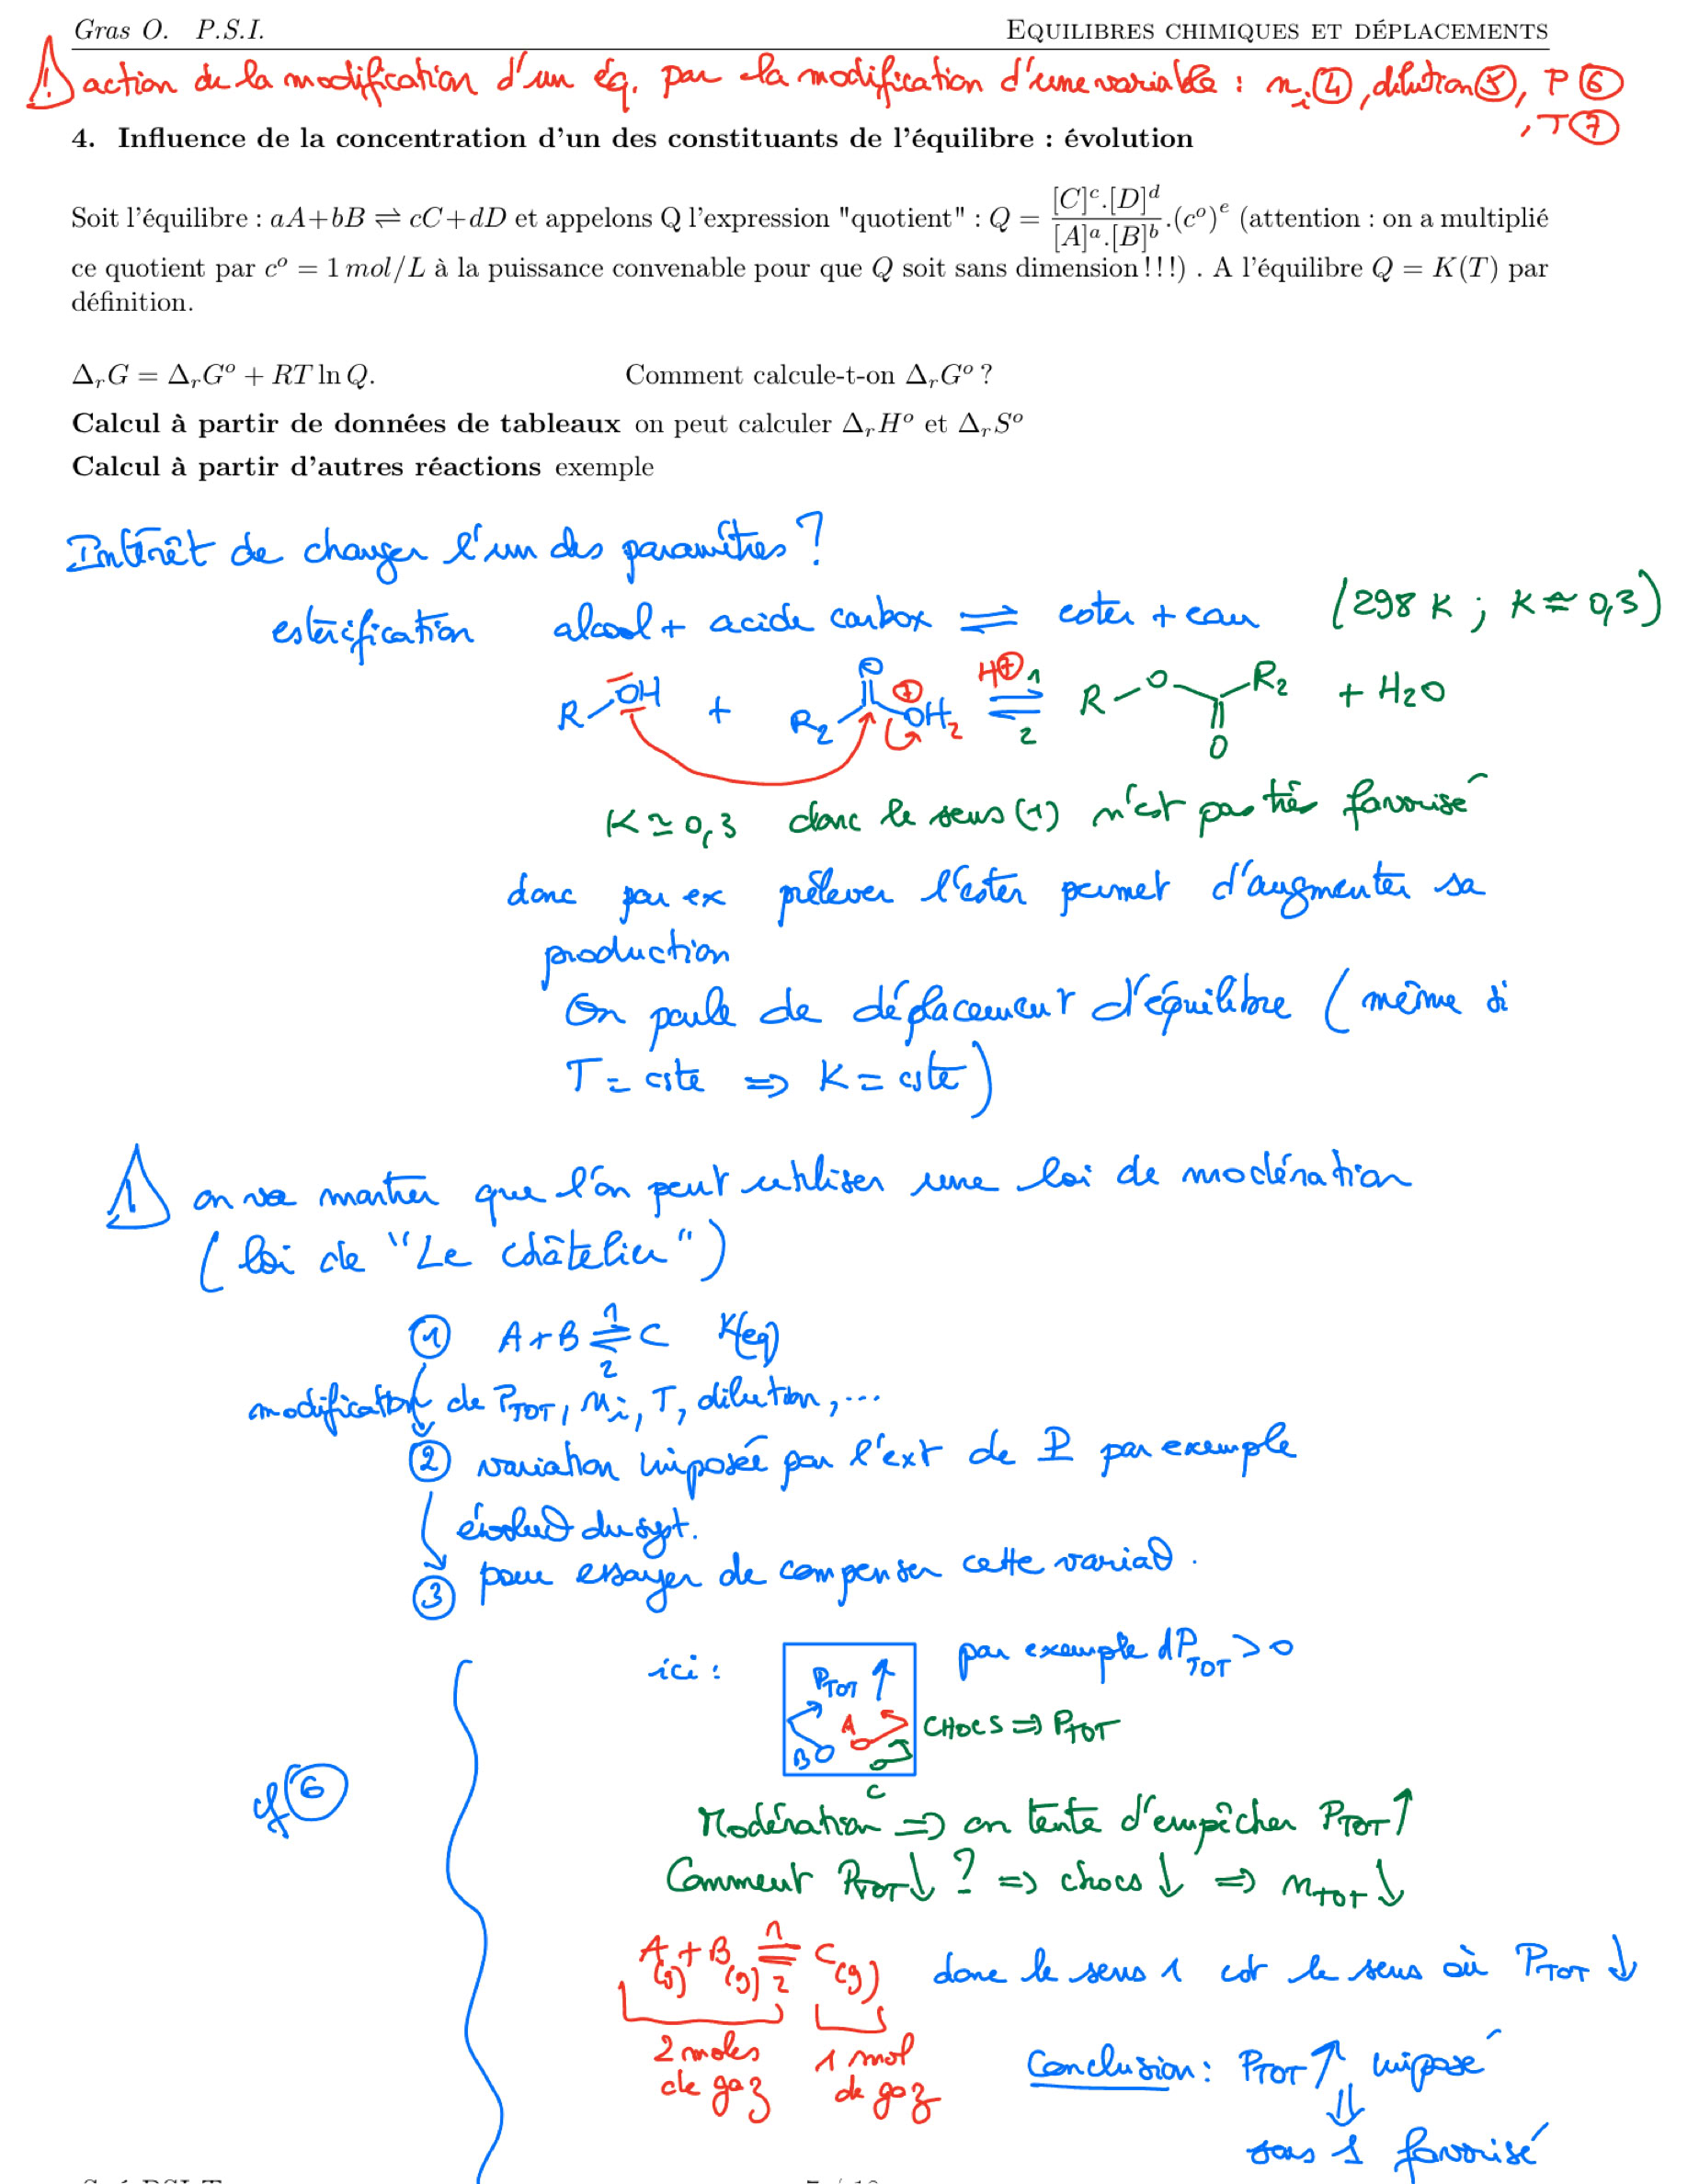 Gras O. P.S.I. EQUILIBRES CHIMIQUES ET DÉPLACEMENTS
⚠ action de la modification d'un éq. par la modification d'une variable : n_i ④, dilution ⑤, P ⑥
, T ⑦
4. Influence de la concentration d'un des constituants de l'équilibre : évolution
Soit l'équilibre : aA+bB ⇌ cC+dD et appelons Q l'expression "quotient" : Q = [C]^c.[D]^d / [A]^a.[B]^b .(c^o)^e (attention : on a multiplié
ce quotient par c^o = 1 mol/L à la puissance convenable pour que Q soit sans dimension!!!) . A l'équilibre Q = K(T) par
définition.
Δ_rG = Δ_rG^o + RT ln Q. Comment calcule-t-on Δ_rG^o ?
Calcul à partir de données de tableaux on peut calculer Δ_rH^o et Δ_rS^o
Calcul à partir d'autres réactions exemple
Intérêt de changer l'un des paramètres ?
estérification alcool + acide carbox ⇌ ester + eau (298 K ; K ≃ 0,3)
R OH + R2 O ⊕ OH2 H⊕ 1 ⇌ 2 R O R2 O + H2O
K ≃ 0,3 donc le sens (1) n'est pas très favorisé
donc par ex prélever l'ester permet d'augmenter sa
production
On parle de déplacement d'équilibre (même si
T = cste ⇒ K = cste)
⚠ on va montrer que l'on peut utiliser une loi de modération
(loi de "Le châtelier")
① A + B ⇌ C K(eq)
1 2
modification de P_TOT, n_i, T, dilution, ...
② variation imposée par l'ext de P par exemple
évolut° du syst.
③ pour essayer de compenser cette variat°.
ici : P_TOT ↑ par exemple dP_TOT > 0
A B C CHOCS ⇒ P_TOT
cf ⑥
Modération ⇒ on tente d'empêcher P_TOT ↑
Comment P_TOT ↓ ? ⇒ chocs ↓ ⇒ n_TOT ↓
A(g) + B(g) 1 ⇌ 2 C(g) donc le sens 1 est le sens où P_TOT ↓
2 moles de gaz 1 mol de gaz Conclusion : P_TOT ↑ imposé
⇓
sens 1 favorisé